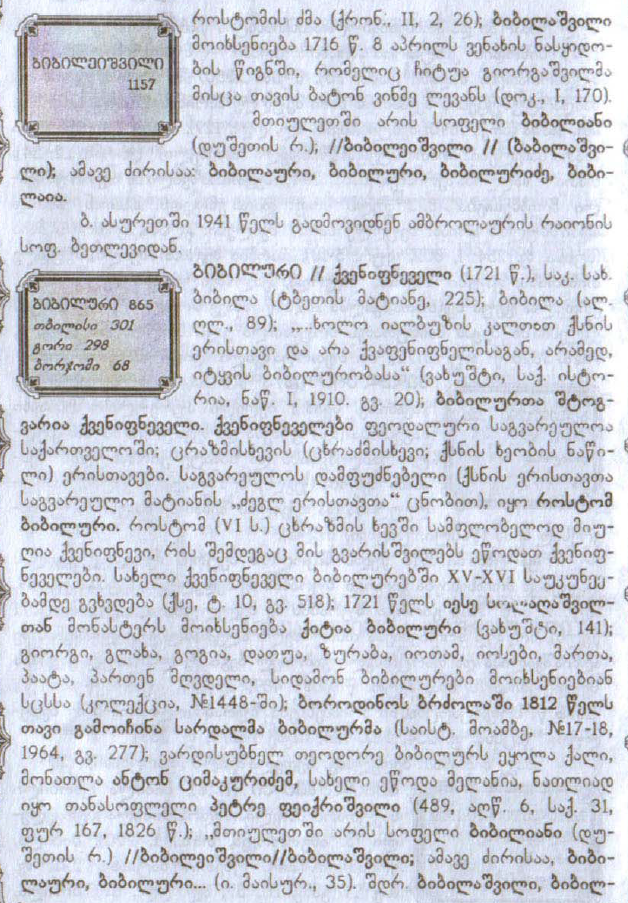 როსტომის ძმა (ქრონ., II, 2, 26); ბიბილაშვილი
მოიხსენიება 1716 წ. 8 აპრილს ვენახის ნასყიდო-
ბის წიგნში, რომელიც ჩიტუა გიორგაშვილმა
მისცა თავის ბატონ ვინმე ლევანს (დოკ., I, 170).
მთიულეთში არის სოფელი ბიბილიანი
(დუშეთის რ.); //ბიბილეიშვილი // (ბაბილაშვი-
ლი); ამავე ძირისაა: ბიბილაური, ბიბილური, ბიბილურიძე, ბიბი-
ლაია.
ბიბილეიშვილი
1157
ბ. ასურეთში 1941 წელს გადმოვიდნენ ამბროლაურის რაიონის
სოფ. ბეთლევიდან.
ბიბილური 865
თბილისი 301
გორი 298
ბორჯომი 68
ბიბილური // ქვენიფნეველი (1721 წ.), საკ. სახ.
ბიბილა (ტბეთის მატიანე, 225); ბიბილა (ალ.
ღლ., 89); „...ხოლო იალბუზის კალთით ქსნის
ერისთავი და არა ქვაფენიფნელისაგან, არამედ,
იტყვის ბიბილურობასა“ (ვახუშტი, საქ. ისტო-
რია, ნაწ. I, 1910. გვ. 20); ბიბილურთა შტოგ-
ვარია ქვენიფნეველი. ქვენიფნეველები ფეოდალური საგვარეულოა
საქართველოში; ცრაზმისხევის (ცხრაძმისხევი; ქსნის ხეობის ნაწი-
ლი) ერისთავები. საგვარეულოს დამფუძნებელი (ქსნის ერისთავთა
საგვარეულო მატიანის „ძეგლ ერისთავთა“ ცნობით), იყო როსტომ
ბიბილური. როსტომ (VI ს.) ცხრაზმის ხევში სამფლობელოდ მიუ-
ღია ქვენიფნევი, რის შემდეგაც მის გვარისშვილებს ეწოდათ ქვენიფ-
ნეველები. სახელი ქვენიფნეველი ბიბილურებში XV-XVI საუკუნეე-
ბამდე გვხვდება (ქსე, ტ. 10, გვ. 518); 1721 წელს იესე
თან მონასტერს მოიხსენიება ქიტია ბიბილური (ვახუშტი, 141);
გიორგი, გლახა, გოგია, დათუა, ზურაბა, იოთამ, იოსები, მართა,
პაატა, პართენ მღვდელი, სიდამონ ბიბილურები მოიხსენიებიან
სცსსა (კოლექცია, №1448-ში); ბოროდინოს ბრძოლაში 1812 წელს
თავი გამოიჩინა სარდალმა ბიბილურმა (საისტ. მოამბე, №17-18,
1964, გვ. 277); ვარდისუბნელ თეოდორე ბიბილურს ეყოლა ქალი,
მონათლა ანტონ ციმაკურიძემ, სახელი ეწოდა მელანია, ნათლიად
იყო თანასოფლელი პეტრე ფეიქრიშვილი (489, აღწ. 6, საქ. 31,
ფურ 167, 1826 წ.); „მთიულეთში არის სოფელი ბიბილიანი (დუ-
შეთის რ.) //ბიბილეიშვილი//ბიბილაშვილი; ამავე ძირისაა, ბიბი-
ლაური, ბიბილური... (ი. მაისურ., 35). შდრ. ბიბილაშვილი, ბიბილ-